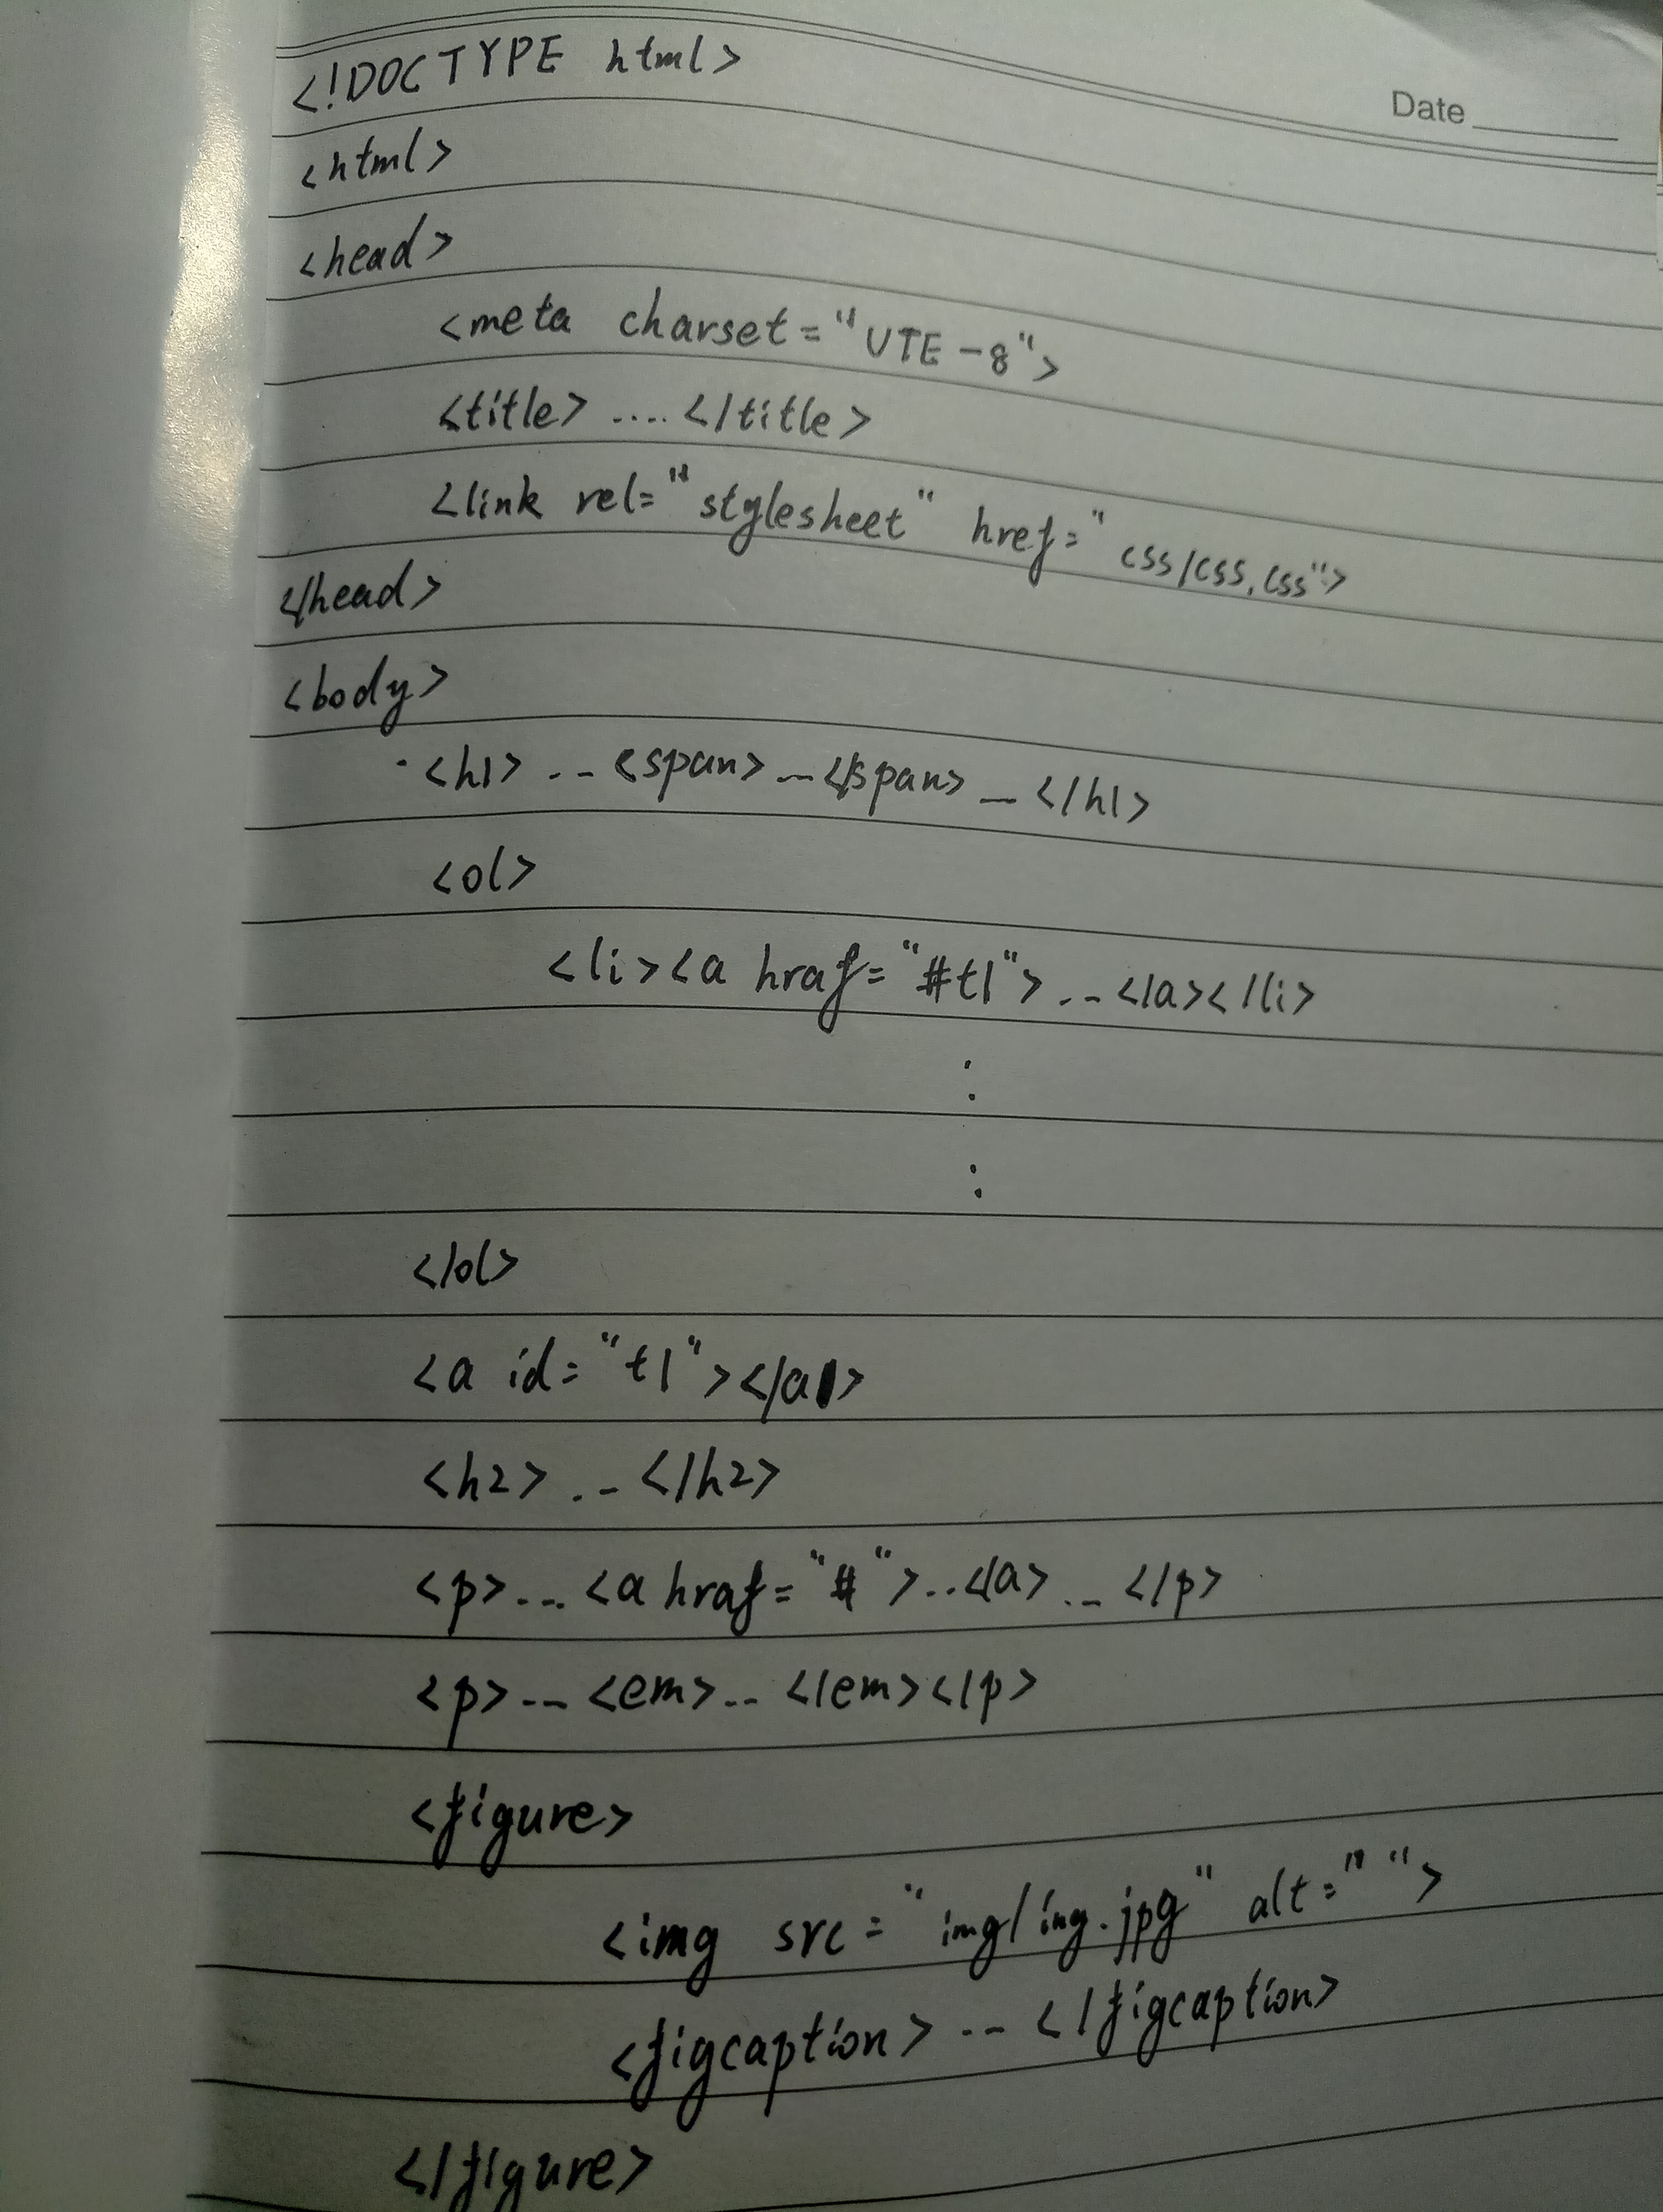 Date
<!DOCTYPE html>
<html>
<head>
<meta charset="UTE-8">
<title> .... </title>
<link rel="stylesheet" href="css/css.css">
</head>
<body>
<h1> ... <span> ... </span> ... </h1>
<ol>
<li><a hraf="#t1"> ... </a></li>
:
:
</ol>
<a id="t1"></a>
<h2> ... </h2>
<p> ... <a hraf="#"> ... </a> ... </p>
<p> ... <em> ... </em></p>
<figure>
<img src="img/img.jpg" alt=" ">
<figcaption> ... </figcaption>
</figure>